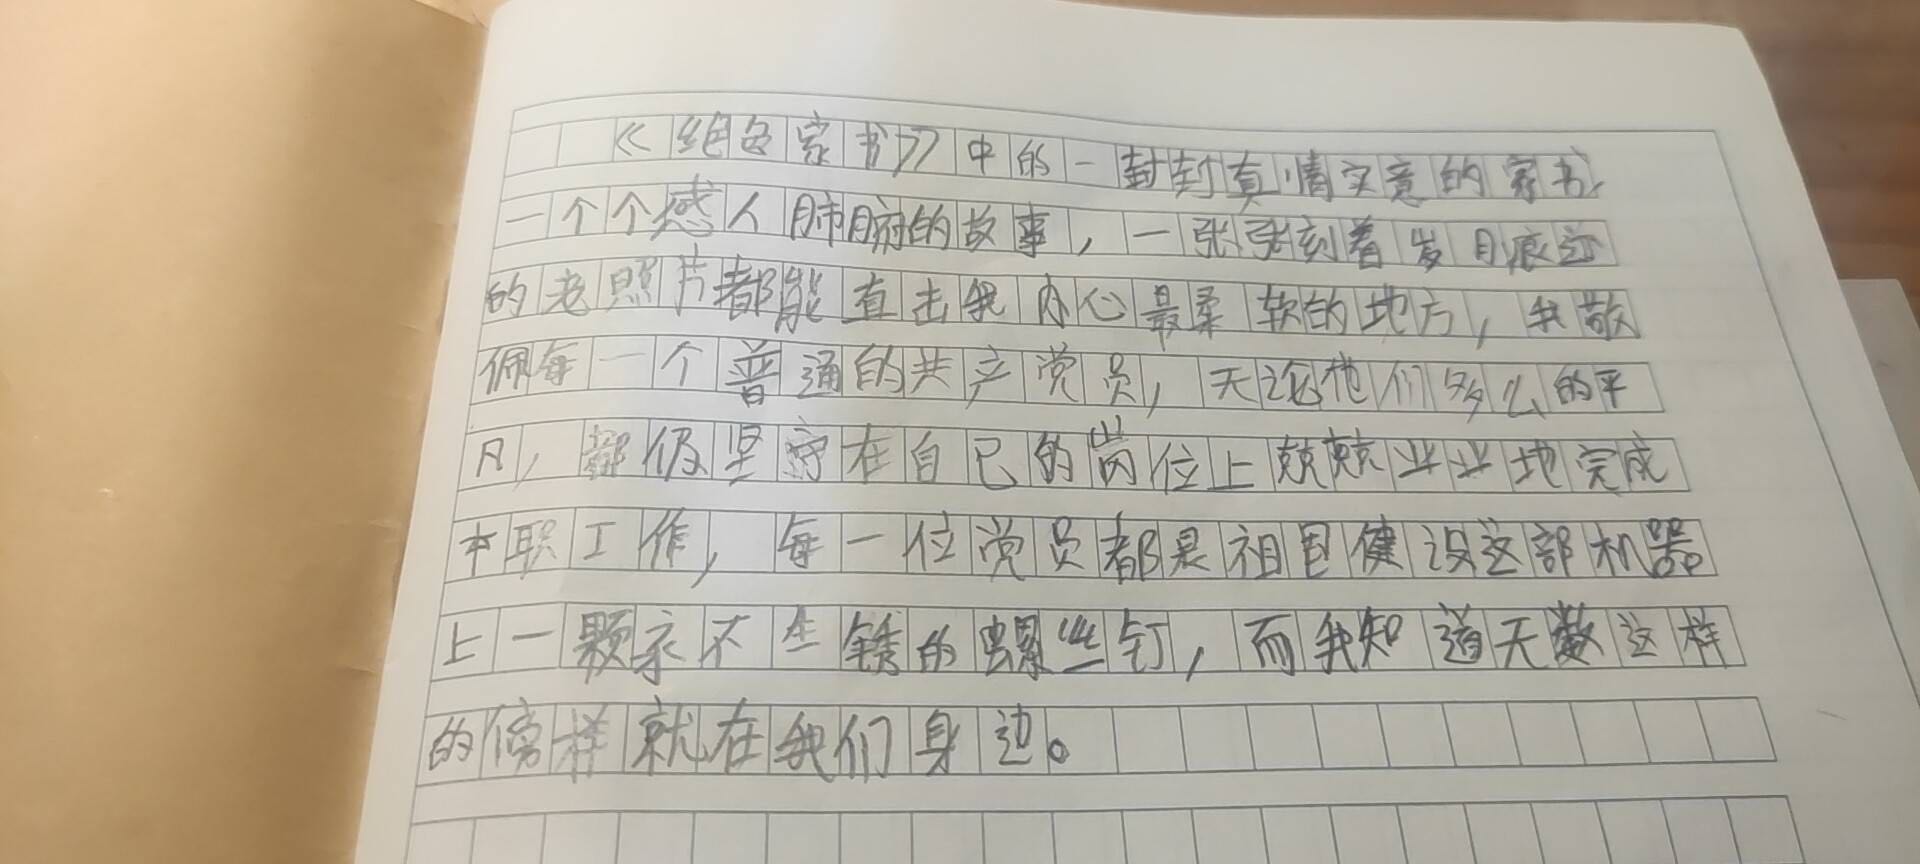 《绝色家书》中的一封封真情实意的家书,
一个个感人肺腑的故事,一张张刻着岁月痕迹
的老照片都能直击我内心最柔软的地方,我敬
佩每一个普通的共产党员,无论他们多么的平
凡,都仍坚守在自己的岗位上兢兢业业地完成
本职工作,每一位党员都是祖国健设这部机器
上一颗永不生锈的螺丝钉,而我知道无数这样
的傍样就在我们身边。